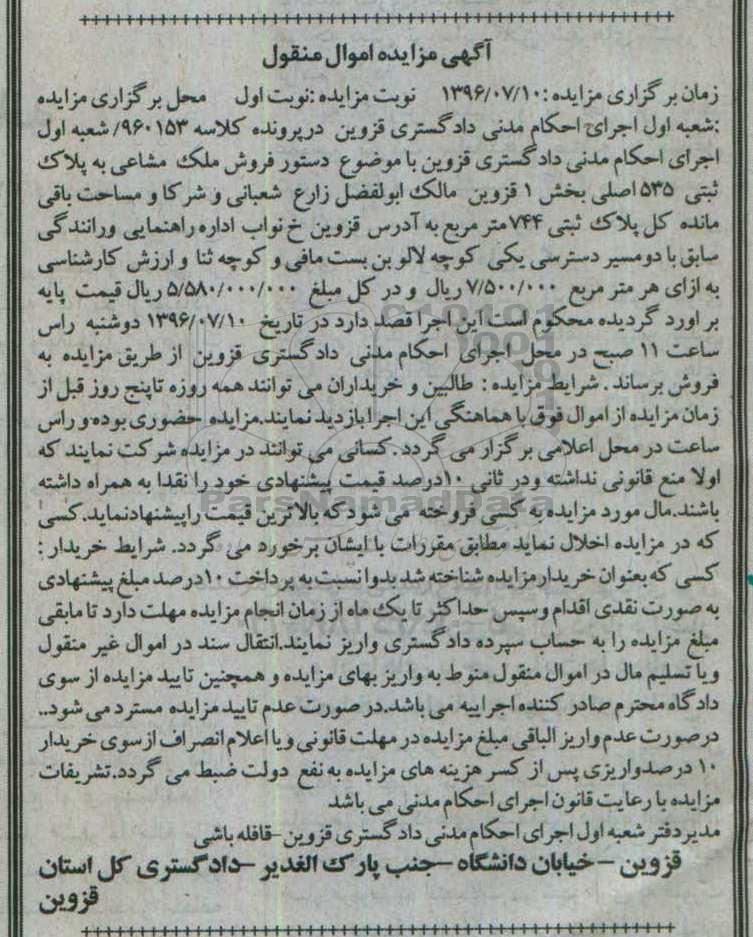 آگهی مزایده اموال منقول
زمان برگزاری مزایده :۱۳۹۶/۰۷/۱۰ نوبت مزایده :نوبت اول محل برگزاری مزایده
:شعبه اول اجرای احکام مدنی دادگستری قزوین درپرونده کلاسه ۹۶۰۱۵۳/ شعبه اول
اجرای احکام مدنی دادگستری قزوین با موضوع دستور فروش ملک مشاعی به پلاک
ثبتی ۵۳۵ اصلی بخش ۱ قزوین مالک ابولفضل زارع شعبانی و شرکا و مساحت باقی
مانده کل پلاک ثبتی ۷۴۴ متر مربع به آدرس قزوین خ نواب اداره راهنمایی ورانندگی
سابق با دو مسیر دسترسی یکی کوچه لالو بن بست مافی و کوچه ثنا و ارزش کارشناسی
به ازای هر متر مربع ۷/۵۰۰/۰۰۰ ریال و در کل مبلغ ۵/۵۸۰/۰۰۰/۰۰۰ ریال قیمت پایه
بر اورد گردیده محکوم است این اجرا قصد دارد در تاریخ ۱۳۹۶/۰۷/۱۰ دوشنبه راس
ساعت ۱۱ صبح در محل اجرای احکام مدنی دادگستری قزوین از طریق مزایده به
فروش برساند . شرایط مزایده : طالبین و خریداران می توانند همه روزه تاپنج روز قبل از
زمان مزایده از اموال فوق با هماهنگی این اجرا بازدید نمایند.مزایده حضوری بوده و راس
ساعت در محل اعلامی برگزار می گردد .کسانی می توانند در مزایده شرکت نمایند که
اولا منع قانونی نداشته ودر ثانی ۱۰درصد قیمت پیشنهادی خود را نقدا به همراه داشته
باشند.مال مورد مزایده به کسی فروخته می شود که بالاترین قیمت راپیشنهادنماید.کسی
که در مزایده اخلال نماید مطابق مقررات با ایشان برخورد می گردد. شرایط خریدار :
کسی که بعنوان خریدار مزایده شناخته شد بدوا نسبت به پرداخت ۱۰درصد مبلغ پیشنهادی
به صورت نقدی اقدام وسپس حداکثر تا یک ماه از زمان انجام مزایده مهلت دارد تا مابقی
مبلغ مزایده را به حساب سپرده دادگستری واریز نمایند.انتقال سند در اموال غیر منقول
ویا تسلیم مال در اموال منقول منوط به واریز بهای مزایده و همچنین تایید مزایده از سوی
دادگاه محترم صادر کننده اجراییه می باشد.در صورت عدم تایید مزایده مسترد می شود..
درصورت عدم واریز الباقی مبلغ مزایده در مهلت قانونی ویا اعلام انصراف ازسوی خریدار
۱۰ درصدواریزی پس از کسر هزینه های مزایده به نفع دولت ضبط می گردد.تشریفات
مزایده با رعایت قانون اجرای احکام مدنی می باشد
مدیردفتر شعبه اول اجرای احکام مدنی دادگستری قزوین-قافله باشی
قزوین – خیابان دانشگاه –جنب پارک الغدیر –دادگستری کل استان
قزوین
ParsNamadData